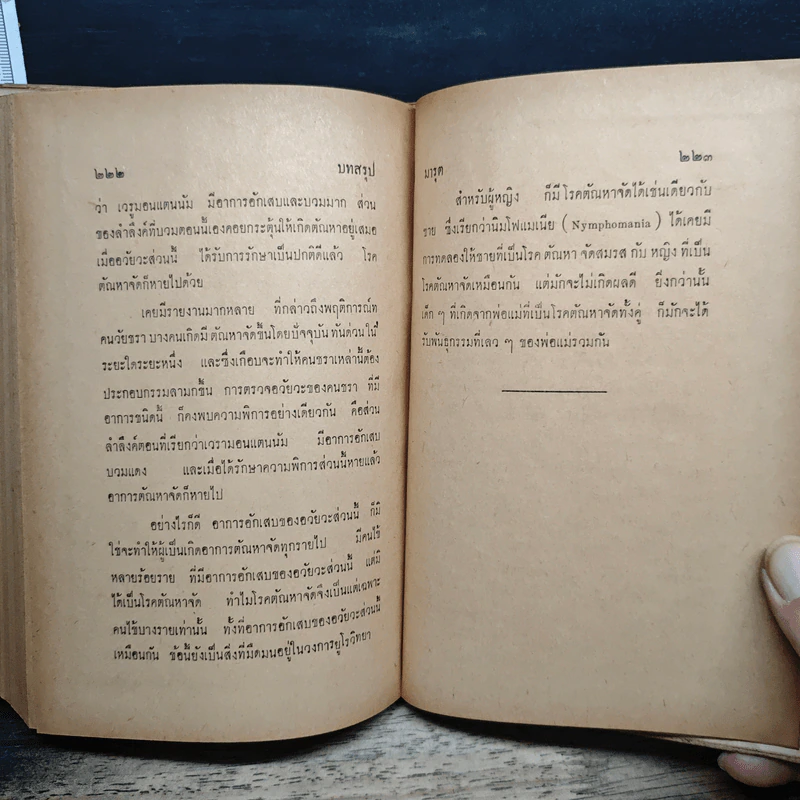 ๒๒๒ บทสรุป
ว่า เวรูมอนแตนนัม มีอาการอักเสบและบวมมาก ส่วน
ของลำลึงค์ที่บวมตอนนี้เองคอยกระตุ้นให้เกิดตัณหาอยู่เสมอ
เมื่ออวัยวะส่วนนี้ ได้รับการรักษาเป็นปกติดีแล้ว โรค
ตัณหาจัดก็หายไปด้วย
เคยมีรายงานมากหลาย ที่กล่าวถึงพฤติการณ์ท
คนวัยชรา บางคนเกิดมี ตัณหาจัดขึ้นโดยปัจจุบัน ทันด่วนใน
ระยะใดระยะหนึ่ง และซึ่งเกือบจะทำให้คนชราเหล่านี้ต้อง
ประกอบกรรมลามกขึ้น การตรวจอวัยวะของคนชรา ที่มี
อาการชนิดนี้ ก็คงพบความพิการอย่างเดียวกัน คือส่วน
ลำลึงค์ตอนที่เรียกว่าเวรามอนแตนนัม มีอาการอักเสบ
บวมแดง และเมื่อได้รักษาความพิการส่วนนี้หายแล้ว
อาการตัณหาจัดก็หายไป
อย่างไรก็ดี อาการอักเสบของอวัยวะส่วนนี้ ก็มิ
ใช่จะทำให้ผู้เป็นเกิดอาการตัณหาจัดทุกรายไป มีคนไข้
หลายร้อยราย ที่มีอาการอักเสบของอวัยวะส่วนนี้ แต่มิ
ได้เป็นโรคตัณหาจัด ทำไมโรคตัณหาจัดจึงเป็นแต่เฉพาะ
คนไข้บางรายเท่านั้น ทั้งที่อาการอักเสบของอวัยวะส่วนนี้
เหมือนกัน ข้อนี้ยังเป็นสิ่งที่มืดมนอยู่ในวงการยูโรวิทยา
มารุต ๒๒๓
สำหรับผู้หญิง ก็มีโรคตัณหาจัดได้เช่นเดียวกับ
ชาย ซึ่งเรียกว่านิมโฟแมเนีย ( Nymphomania ) ได้เคยมี
การทดลองให้ชายที่เป็นโรค ตัณหา จัดสมรส กับ หญิง ที่เป็น
โรคตัณหาจัดเหมือนกัน แต่มักจะไม่เกิดผลดี ยิ่งกว่านั้น
เด็ก ๆ ที่เกิดจากพ่อแม่ที่เป็นโรคตัณหาจัดทั้งคู่ ก็มักจะได้
รับพันธุ์กรรมที่เลว ๆ ของพ่อแม่รวมกัน